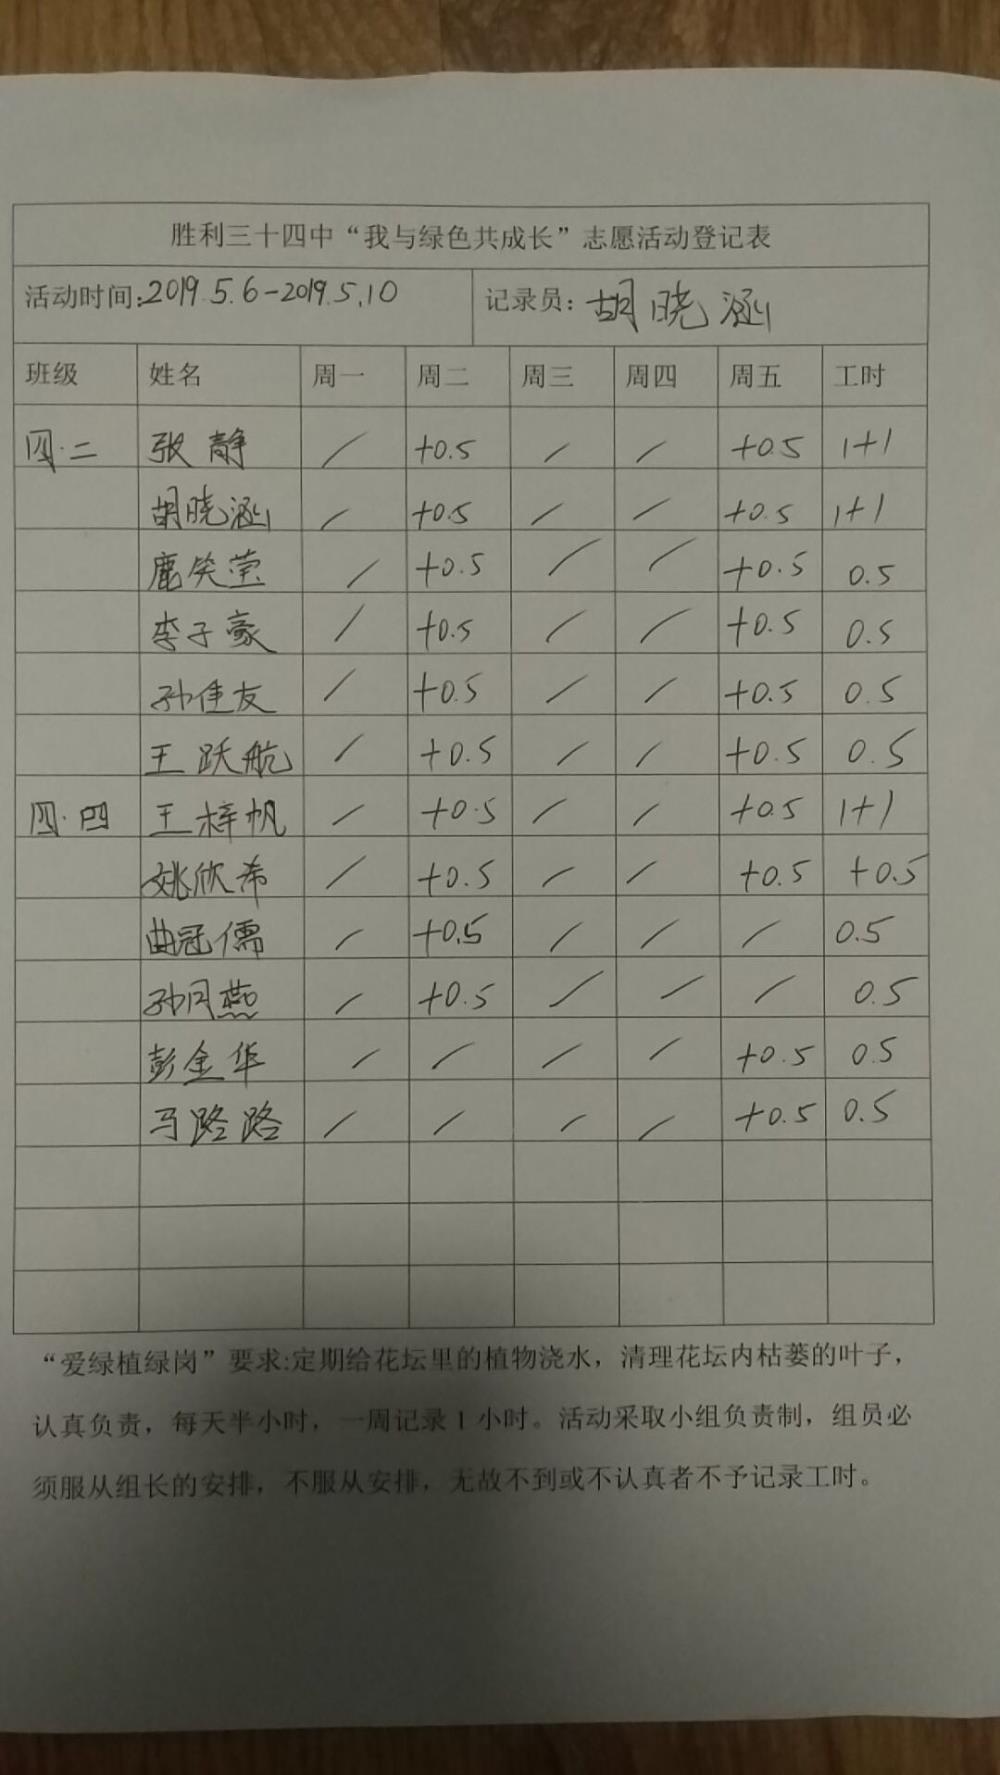 胜利三十四中“我与绿色共成长”志愿活动登记表
活动时间:2019.5.6-2019.5.10 记录员: 胡晓涵
班级 姓名 周一 周二 周三 周四 周五 工时
四.二 张静 / +0.5 / / +0.5 1+1
胡晓涵 / +0.5 / / +0.5 1+1
鹿笑莹 / +0.5 / / +0.5 0.5
李子豪 / +0.5 / / +0.5 0.5
孙佳友 / +0.5 / / +0.5 0.5
王跃航 / +0.5 / / +0.5 0.5
四.四 王梓帆 / +0.5 / / +0.5 1+1
姚欣希 / +0.5 / / +0.5 +0.5
曲冠儒 / +0.5 / / / 0.5
孙月燕 / +0.5 / / / 0.5
彭金华 / / / / +0.5 0.5
马路路 / / / / +0.5 0.5
“爱绿植绿岗”要求:定期给花坛里的植物浇水，清理花坛内枯萎的叶子，
认真负责，每天半小时，一周记录1小时。活动采取小组负责制，组员必
须服从组长的安排，不服从安排，无故不到或不认真者不予记录工时。